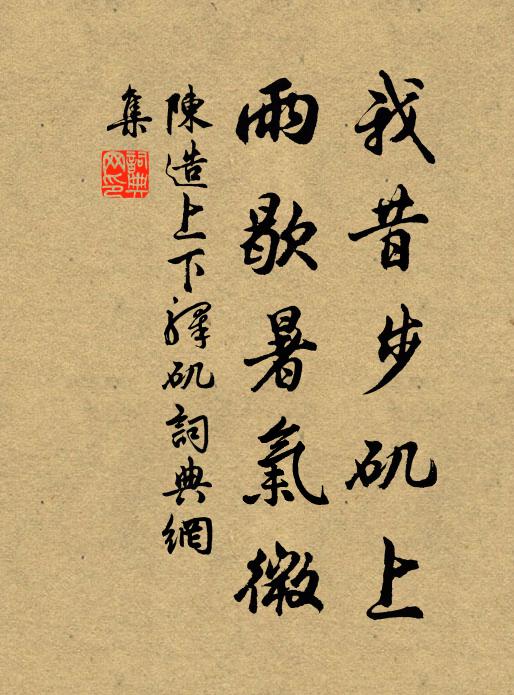 我昔步矶上
雨歇暑氣微
陳造上下釋矶詞典網
集
詞典
网印